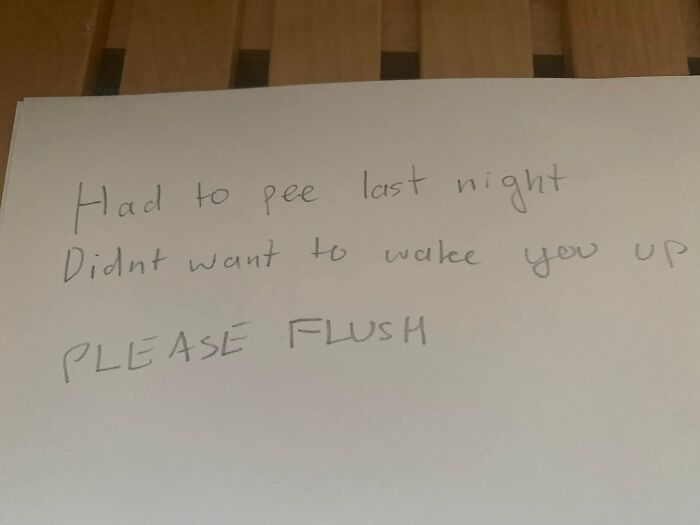 Had to pee last night
Didnt want to wake you up
PLEASE FLUSH